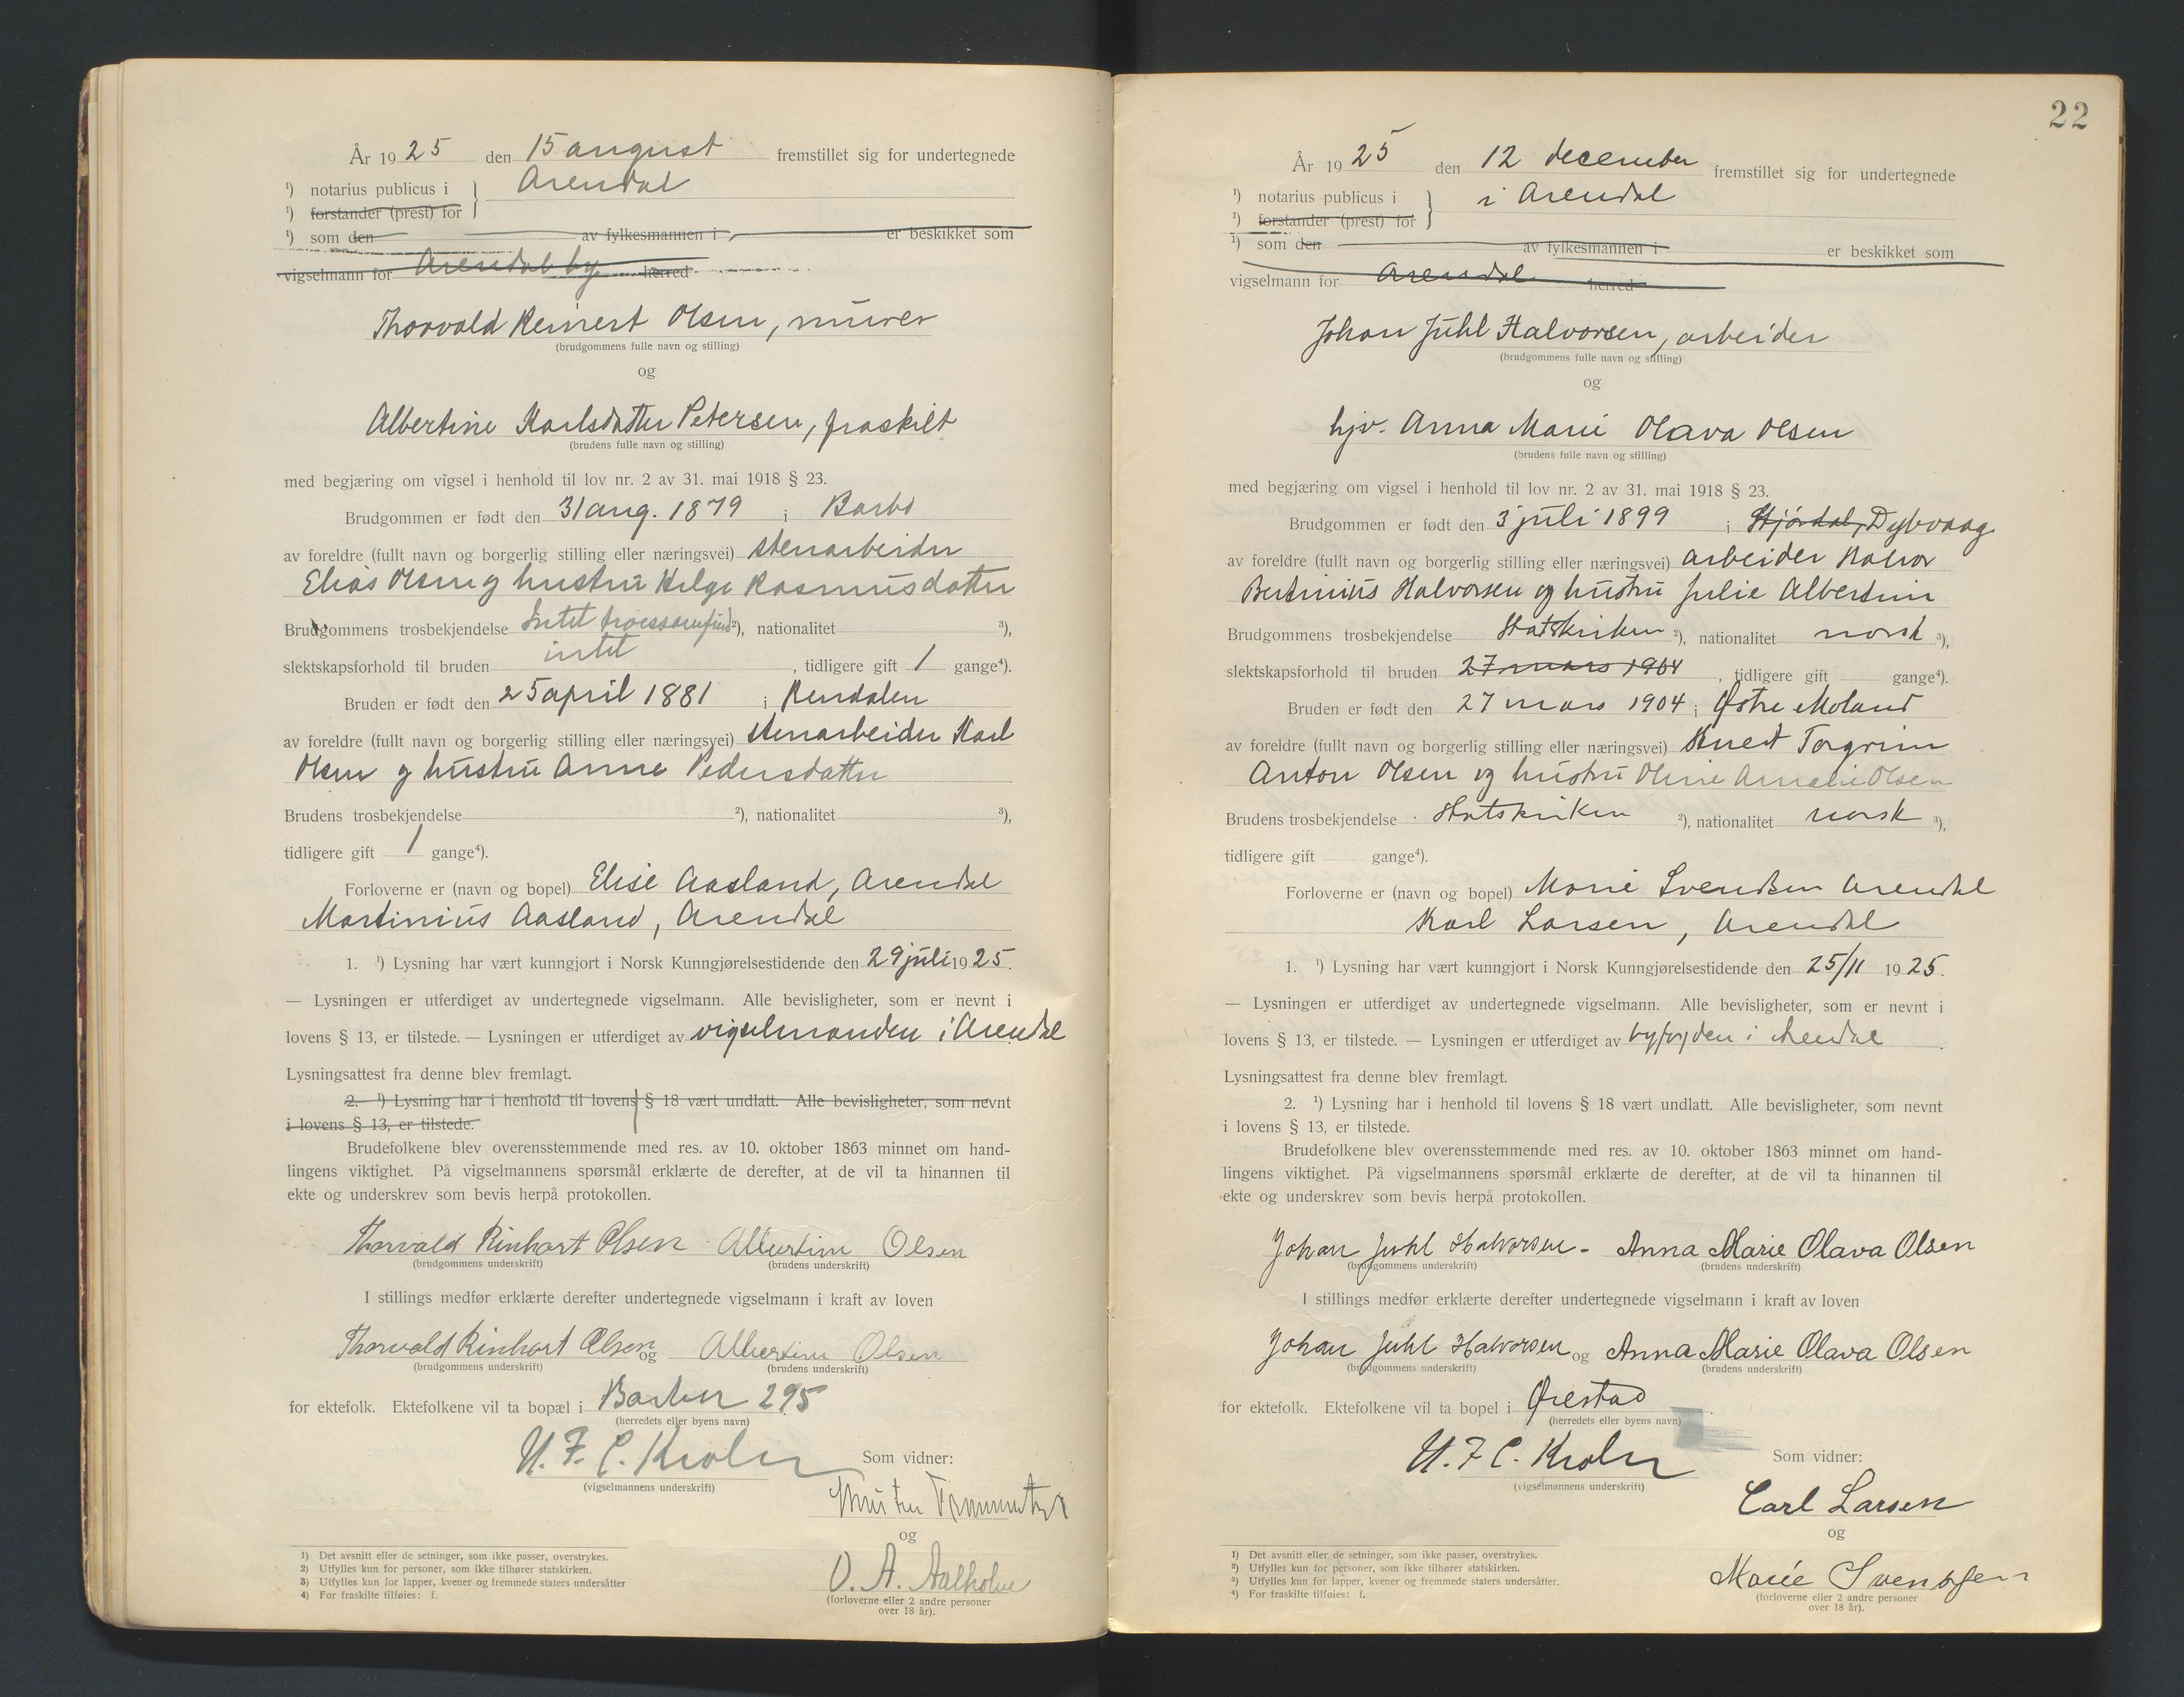 År 1925 den 15 august fremstillet sig for undertegnede
¹) notarius publicus i } Arendal
¹) forstander (prest) for
¹) som den av fylkesmannen i er beskikket som
vigselmann for Arendal by herred
Thorvald Reinert Olsen, murer
(brudgommens fulle navn og stilling)
og
Albertine Karlsdatter Petersen, fraskilt
(brudens fulle navn og stilling)
med begjæring om vigsel i henhold til lov nr. 2 av 31. mai 1918 § 23.
Brudgommen er født den 31 aug. 1879 i Barbo
av foreldre (fullt navn og borgerlig stilling eller næringsvei) stenarbeider
Elias Olsen og hustru Helge Rasmusdatter
Brudgommens trosbekjendelse Intet troessamfund ²), nationalitet ³),
slektskapsforhold til bruden intet , tidligere gift 1 gange⁴).
Bruden er født den 25 april 1881 i Rendalen
av foreldre (fullt navn og borgerlig stilling eller næringsvei) stenarbeider Karl
Olsen og hustru Anne Pedersdatter
Brudens trosbekjendelse ²), nationalitet ³),
tidligere gift 1 gange⁴).
Forloverne er (navn og bopel) Elise Aasland, Arendal
Martinius Aasland, Arendal
1. ¹) Lysning har vært kunngjort i Norsk Kunngjørelsestidende den 29 juli 1925.
— Lysningen er utferdiget av undertegnede vigselmann. Alle bevisligheter, som er nevnt i
lovens § 13, er tilstede. — Lysningen er utferdiget av vigselmanden i Arendal
Lysningsattest fra denne blev fremlagt.
2. ¹) Lysning har i henhold til lovens § 18 vært undlatt. Alle bevisligheter, som nevnt
i lovens § 13, er tilstede.
Brudefolkene blev overensstemmende med res. av 10. oktober 1863 minnet om hand-
lingens viktighet. På vigselmannens spørsmål erklærte de derefter, at de vil ta hinannen til
ekte og underskrev som bevis herpå protokollen.
Thorvald Rinhart Olsen Albertine Olsen
(brudgommens underskrift) (brudens underskrift)
I stillings medfør erklærte derefter undertegnede vigselmann i kraft av loven
Thorvald Rinhart Olsen og Albertine Olsen
(brudgommens underskrift) (brudens underskrift)
for ektefolk. Ektefolkene vil ta bopæl i 295
(herredets eller byens navn)
N. F. C. Krohn Som vidner:
(vigselmannens underskrift)
og
O. A. Aalholm
(forloverne eller 2 andre personer
over 18 år).
1) Det avsnitt eller de setninger, som ikke passer, overstrykes.
2) Utfylles kun for personer, som ikke tilhører statskirken.
3) Utfylles kun for lapper, kvener og fremmede staters undersåtter
4) For fraskilte tilføies: f.
22
År 1925 den 12 december fremstillet sig for undertegnede
¹) notarius publicus i } i Arendal
¹) forstander (prest) for
¹) som den av fylkesmannen i er beskikket som
vigselmann for Arendal herred
Johan Juhl Halvorsen, arbeider
(brudgommens fulle navn og stilling)
og
hjv. Anna Marie Olava Olsen
(brudens fulle navn og stilling)
med begjæring om vigsel i henhold til lov nr. 2 av 31. mai 1918 § 23.
Brudgommen er født den 3 juli 1899 i Stjørdal, Dybvaag
av foreldre (fullt navn og borgerlig stilling eller næringsvei) arbeider Halvor
Bertinius Halvorsen og hustru Julie Albertine
Brudgommens trosbekjendelse Statskirken ²), nationalitet norsk ³),
slektskapsforhold til bruden 27 mars 1904 , tidligere gift gange⁴).
Bruden er født den 27 mars 1904 i Østre Moland
av foreldre (fullt navn og borgerlig stilling eller næringsvei) Knut Torgrim
Anton Olsen og hustru Oline Amalie Olsen
Brudens trosbekjendelse Statskirken ²), nationalitet norsk ³),
tidligere gift gange⁴).
Forloverne er (navn og bopel) Marie Svendsen Arendal
Karl Larsen, Arendal
1. ¹) Lysning har vært kunngjort i Norsk Kunngjørelsestidende den 25/11 1925.
— Lysningen er utferdiget av undertegnede vigselmann. Alle bevisligheter, som er nevnt i
lovens § 13, er tilstede. — Lysningen er utferdiget av byfogden i Arendal .
Lysningsattest fra denne blev fremlagt.
2. ¹) Lysning har i henhold til lovens § 18 vært undlatt. Alle bevisligheter, som nevnt
i lovens § 13, er tilstede.
Brudefolkene blev overensstemmende med res. av 10. oktober 1863 minnet om hand-
lingens viktighet. På vigselmannens spørsmål erklærte de derefter, at de vil ta hinannen til
ekte og underskrev som bevis herpå protokollen.
Johan Juhl Halvorsen - Anna Marie Olava Olsen
(brudgommens underskrift) (brudens underskrift)
I stillings medfør erklærte derefter undertegnede vigselmann i kraft av loven
Johan Juhl Halvorsen og Anna Marie Olava Olsen
(brudgommens underskrift) (brudens underskrift)
for ektefolk. Ektefolkene vil ta bopel i Øiestad .
(herredets eller byens navn)
N. F. C. Krohn Som vidner:
(vigselmannens underskrift)
Carl Larsen
og
Marie Svendsen
(forloverne eller 2 andre personer
over 18 år).
1) Det avsnitt eller de setninger, som ikke passer, overstrykes.
2) Utfylles kun for personer, som ikke tilhører statskirken.
3) Utfylles kun for lapper, kvener og fremmede staters undersåtter.
4) For fraskilte tilføies: f.